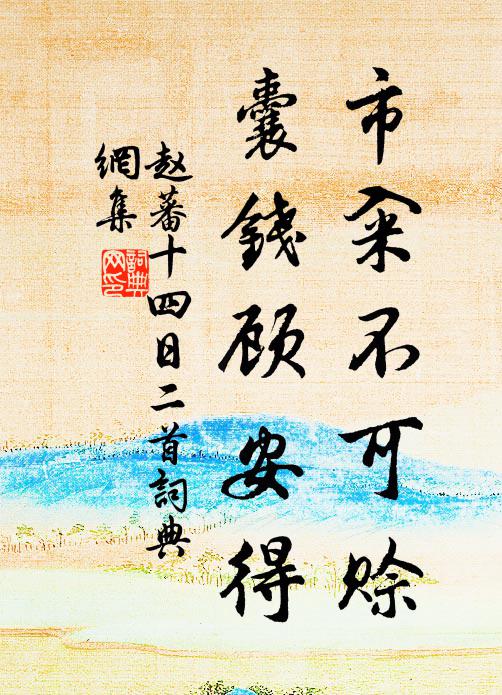 市籴不可赊
囊錢顾安得
赵蕃十四日二首詞典
網集
詞典
网印